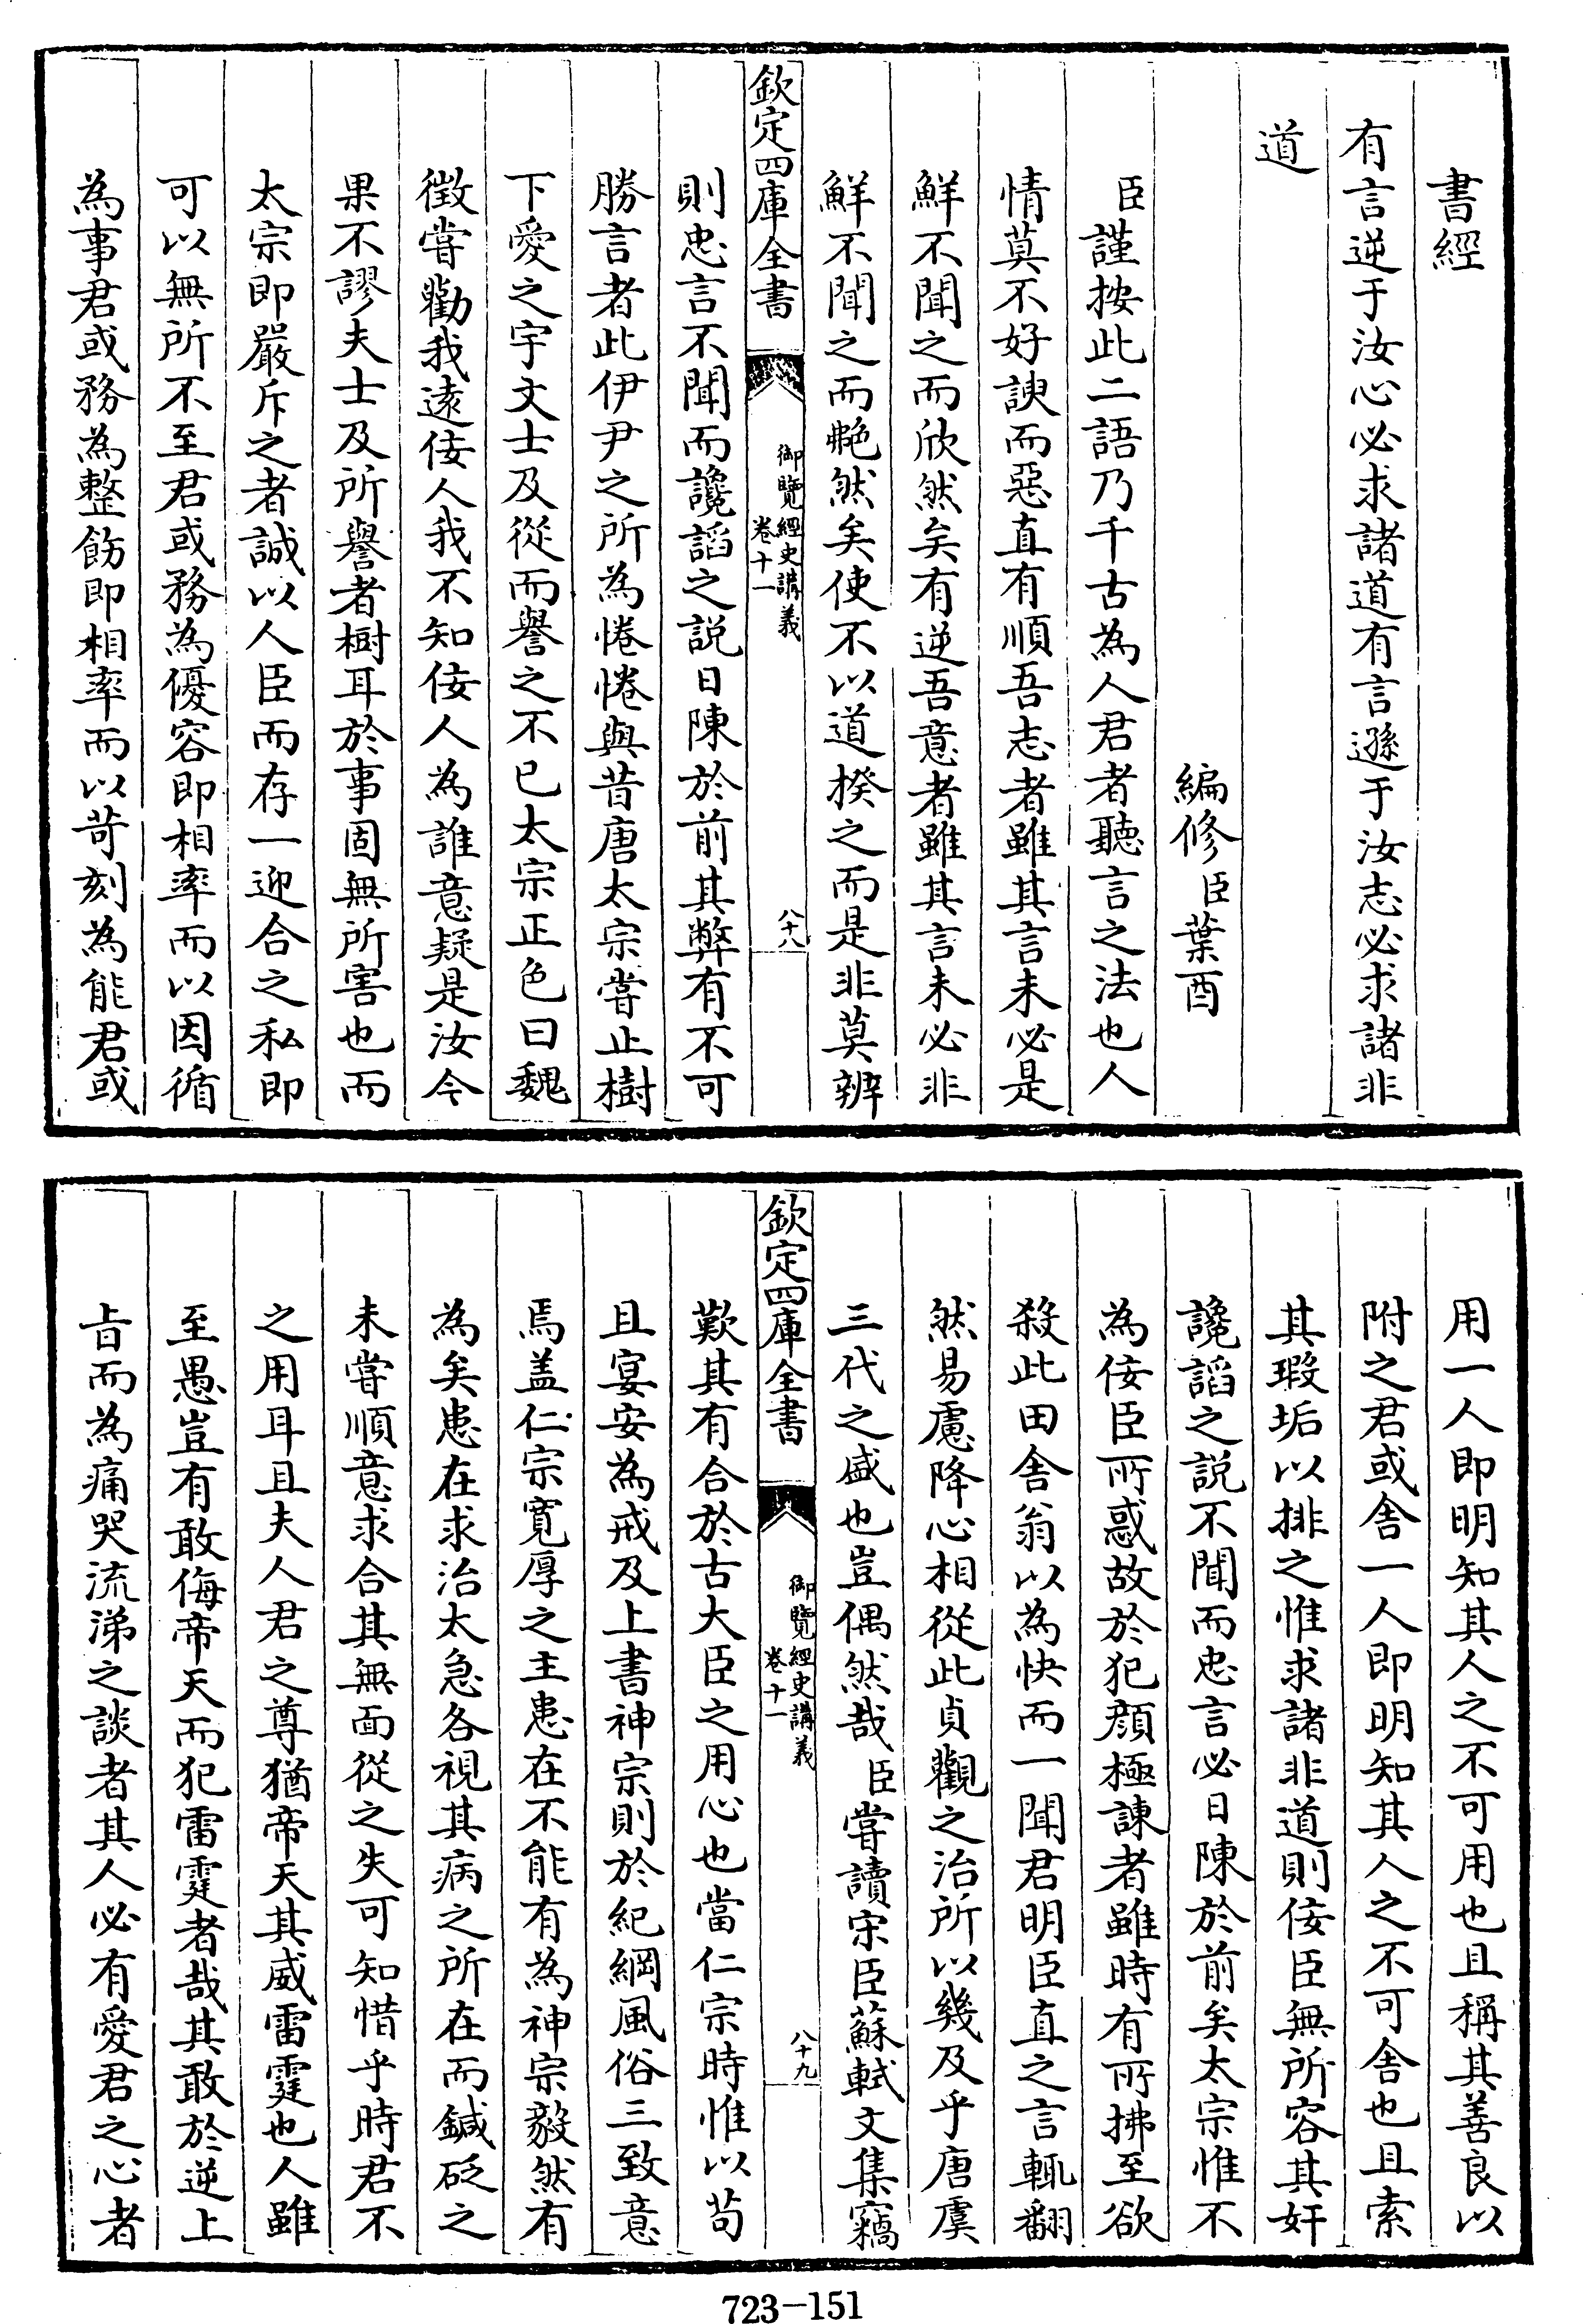 書經
有言逆于汝心必求諸道有言遜于汝志必求諸非
道
編修臣葉酉
臣謹按此二語乃千古為人君者聽言之法也人
情莫不好諛而惡直有順吾志者雖其言未必是
鮮不聞之而欣然矣有逆吾意者雖其言未必非
鮮不聞之而艴然矣使不以道揆之而是非莫辨
欽定四庫全書
御覽經史講義
卷十一
八十八
則忠言不聞而讒諂之説日陳於前其弊有不可
勝言者此伊尹之所為惓惓與昔唐太宗嘗止樹
下愛之宇文士及從而譽之不已太宗正色曰魏
徵嘗勸我遠佞人我不知佞人為誰意疑是汝今
果不謬夫士及所譽者樹耳於事固無所害也而
太宗即嚴斥之者誠以人臣而存一迎合之私即
可以無所不至君或務為優容即相率而以因循
為事君或務為整飭即相率而以苛刻為能君或
用一人即明知其人之不可用也且稱其善良以
附之君或舍一人即明知其人之不可舍也且索
其瑕垢以排之惟求諸非道則佞臣無所容其奸
讒諂之説不聞而忠言必日陳於前矣太宗惟不
為佞臣所惑故於犯顔極諫者雖時有所拂至欲
殺此田舍翁以為快而一聞君明臣直之言輒翻
然易慮降心相從此貞觀之治所以幾及乎唐虞
三代之盛也豈偶然哉臣嘗讀宋臣蘇軾文集竊
欽定四庫全書
御覽經史講義
卷十一
八十九
歎其有合於古大臣之用心也當仁宗時惟以苟
且宴安為戒及上書神宗則於紀綱風俗三致意
焉盖仁宗寛厚之主患在不能有為神宗毅然有
為矣患在求治太急各視其病之所在而鍼砭之
未嘗順意求合其無面從之失可知惜乎時君不
之用耳且夫人君之尊猶帝天其威雷霆也人雖
至愚豈有敢侮帝天而犯雷霆者哉其敢於逆上
旨而為痛哭流涕之談者其人必有愛君之心者
723-151